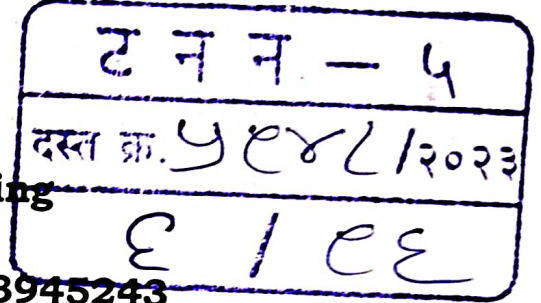 ट न न – ५
दस्त क्र. ५९४८/२०२३
ing
६ / ९६
3945243